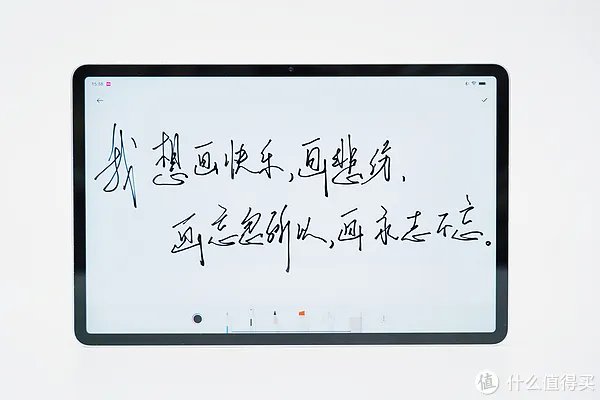 15:38
我想画快乐,画悲伤,
画忘忽所以,画永志不忘。
值 什么值得买